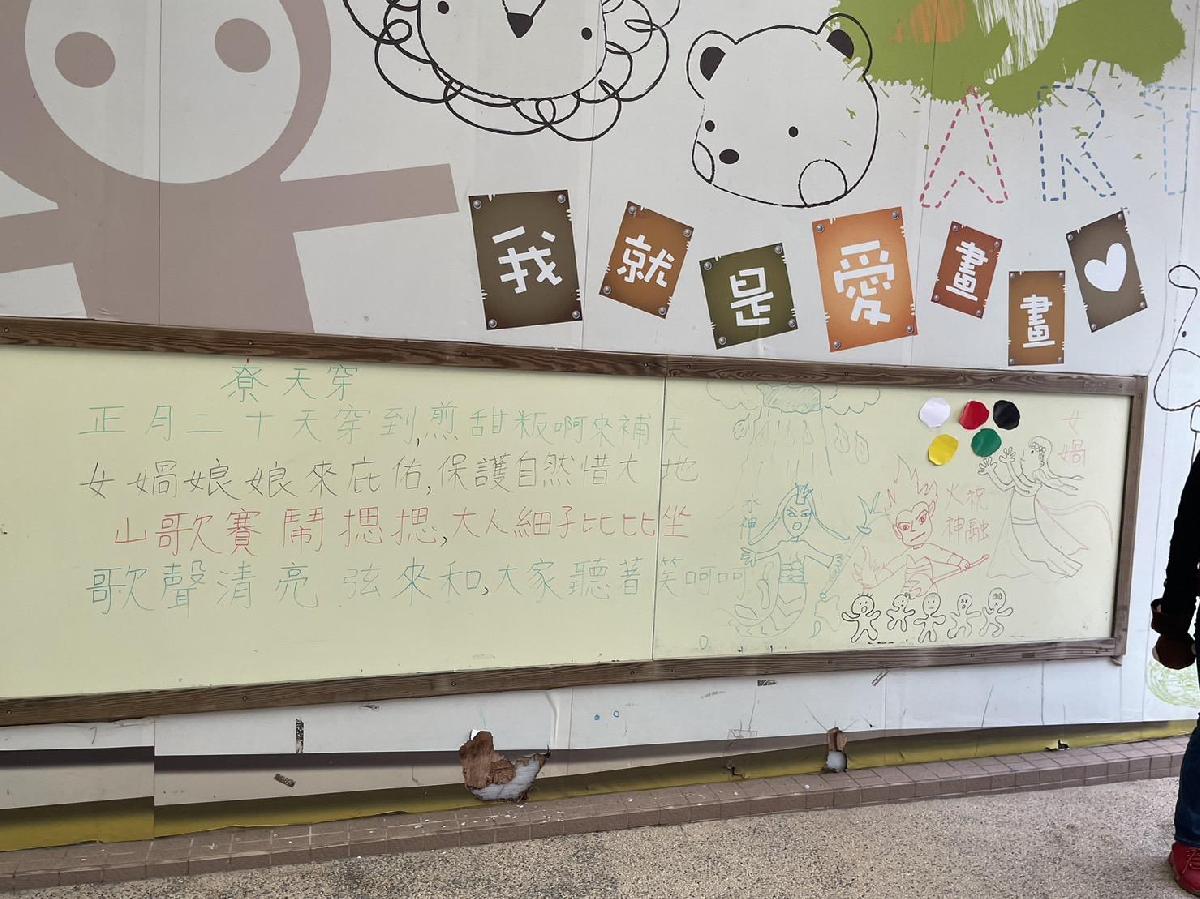 ART
我就是愛畫畫
尞天穿
正月二十天穿到,煎甜粄啊來補天
女媧娘娘來庇佑,保護自然惜大地
山歌賽鬧摁摁,大人細子比比坐
歌聲清亮弦來和,大家聽著笑呵呵
女媧
水神
火神
祝融